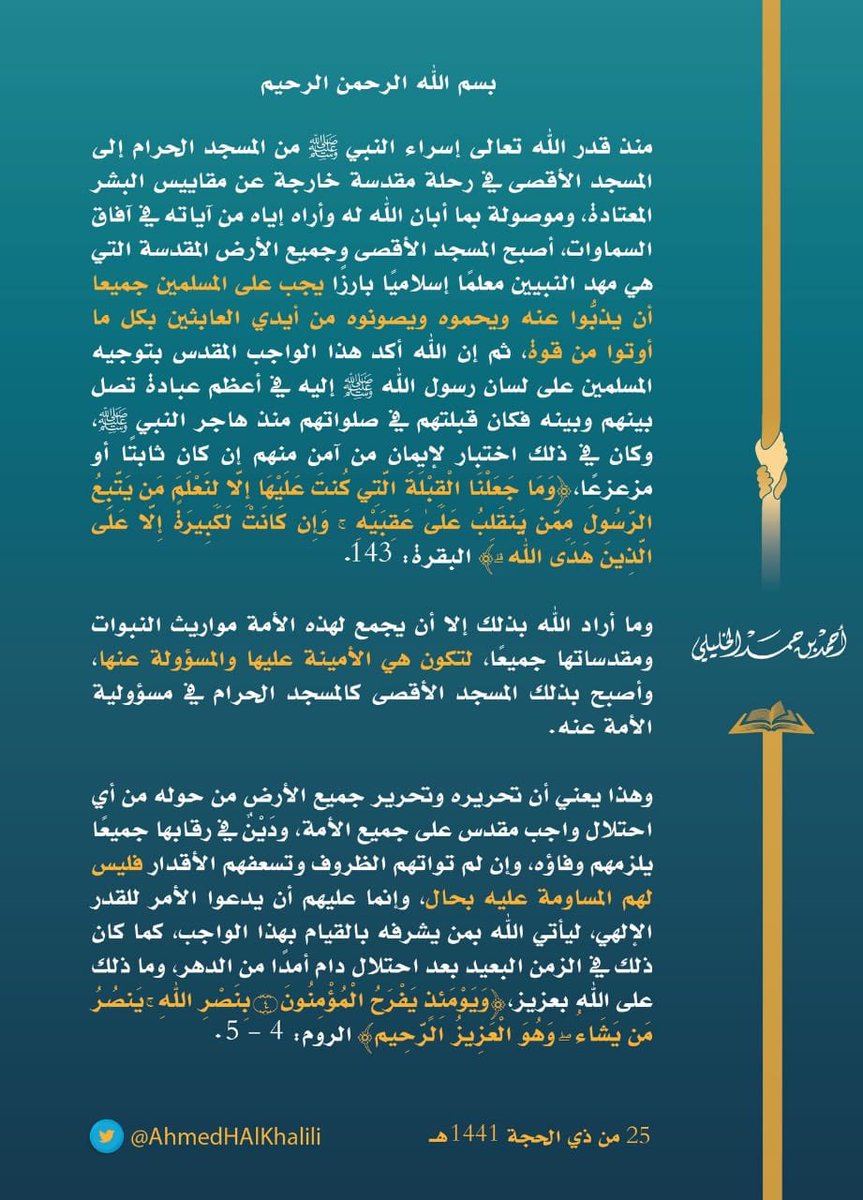 بسم الله الرحمن الرحيم
منذ قدر الله تعالى إسراء النبي ﷺ من المسجد الحرام إلى
المسجد الأقصى في رحلة مقدسة خارجة عن مقاييس البشر
المعتادة، وموصولة بما أبان الله له وأراه إياه من آياته في آفاق
السماوات، أصبح المسجد الأقصى وجميع الأرض المقدسة التي
هي مهد النبيين معلمًا إسلاميًا بارزًا يجب على المسلمين جميعا
أن يذبُّوا عنه ويحموه ويصونوه من أيدي العابثين بكل ما
أوتوا من قوة، ثم إن الله أكد هذا الواجب المقدس بتوجيه
المسلمين على لسان رسول الله ﷺ إليه في أعظم عبادة تصل
بينهم وبينه فكان قبلتهم في صلواتهم منذ هاجر النبي ﷺ،
وكان في ذلك اختبار لإيمان من آمن منهم إن كان ثابتًا أو
مزعزعًا،﴿وَمَا جَعَلْنَا الْقِبْلَةَ الَّتِي كُنتَ عَلَيْهَا إِلَّا لِنَعْلَمَ مَن يَتَّبِعُ
الرَّسُولَ مِمَّن يَنقَلِبُ عَلَىٰ عَقِبَيْهِ ۚ وَإِن كَانَتْ لَكَبِيرَةً إِلَّا عَلَى
الَّذِينَ هَدَى اللَّه ۗ﴾ البقرة: 143.
وما أراد الله بذلك إلا أن يجمع لهذه الأمة مواريث النبوات
ومقدساتها جميعًا، لتكون هي الأمينة عليها والمسؤولة عنها،
وأصبح بذلك المسجد الأقصى كالمسجد الحرام في مسؤولية
الأمة عنه.
وهذا يعني أن تحريره وتحرير جميع الأرض من حوله من أي
احتلال واجب مقدس على جميع الأمة، ودَيْنٌ في رقابها جميعًا
يلزمهم وفاؤه، وإن لم تواتهم الظروف وتسعفهم الأقدار فليس
لهم المساومة عليه بحال، وإنما عليهم أن يدعوا الأمر للقدر
الإلهي، ليأتي الله بمن يشرفه بالقيام بهذا الواجب، كما كان
ذلك في الزمن البعيد بعد احتلال دام أمدًا من الدهر، وما ذلك
على الله بعزيز،﴿وَيَوْمَئِذٍ يَفْرَحُ الْمُؤْمِنُونَ ۝٤ بِنَصْرِ اللَّهِ ۚ يَنصُرُ
مَن يَشَاءُ ۖ وَهُوَ الْعَزِيزُ الرَّحِيم﴾ الروم: 4 – 5.
أحمد بن حمد الخليلي
25 من ذي الحجة 1441هـ
@AhmedHAlKhalili